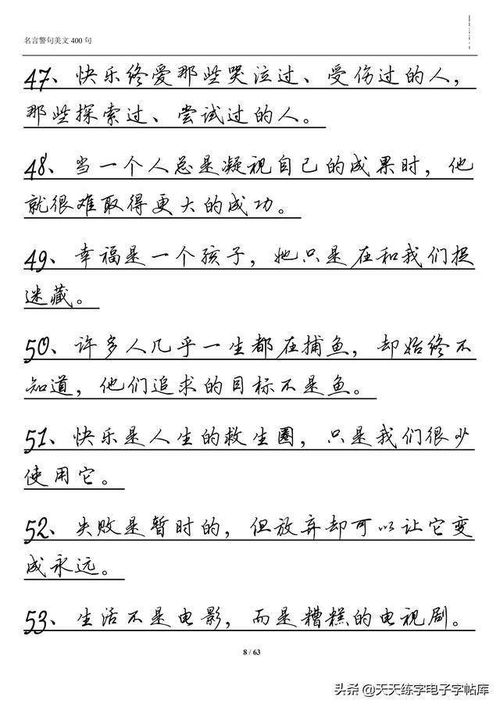 名言警句美文 400 句
47、快乐终爱那些哭泣过、受伤过的人，
那些探索过、尝试过的人。
48、当一个人总是凝视自己的成果时，他
就很难取得更大的成功。
49、幸福是一个孩子，她只是在和我们捉
迷藏。
50、许多人几乎一生都在捕鱼，却始终不
知道，他们追求的目标不是鱼。
51、快乐是人生的救生圈，只是我们很少
使用它。
52、失败是暂时的，但放弃却可以让它变
成永远。
53、生活不是电影，而是糟糕的电视剧。
8 / 63
头条 @天天练字电子字帖库